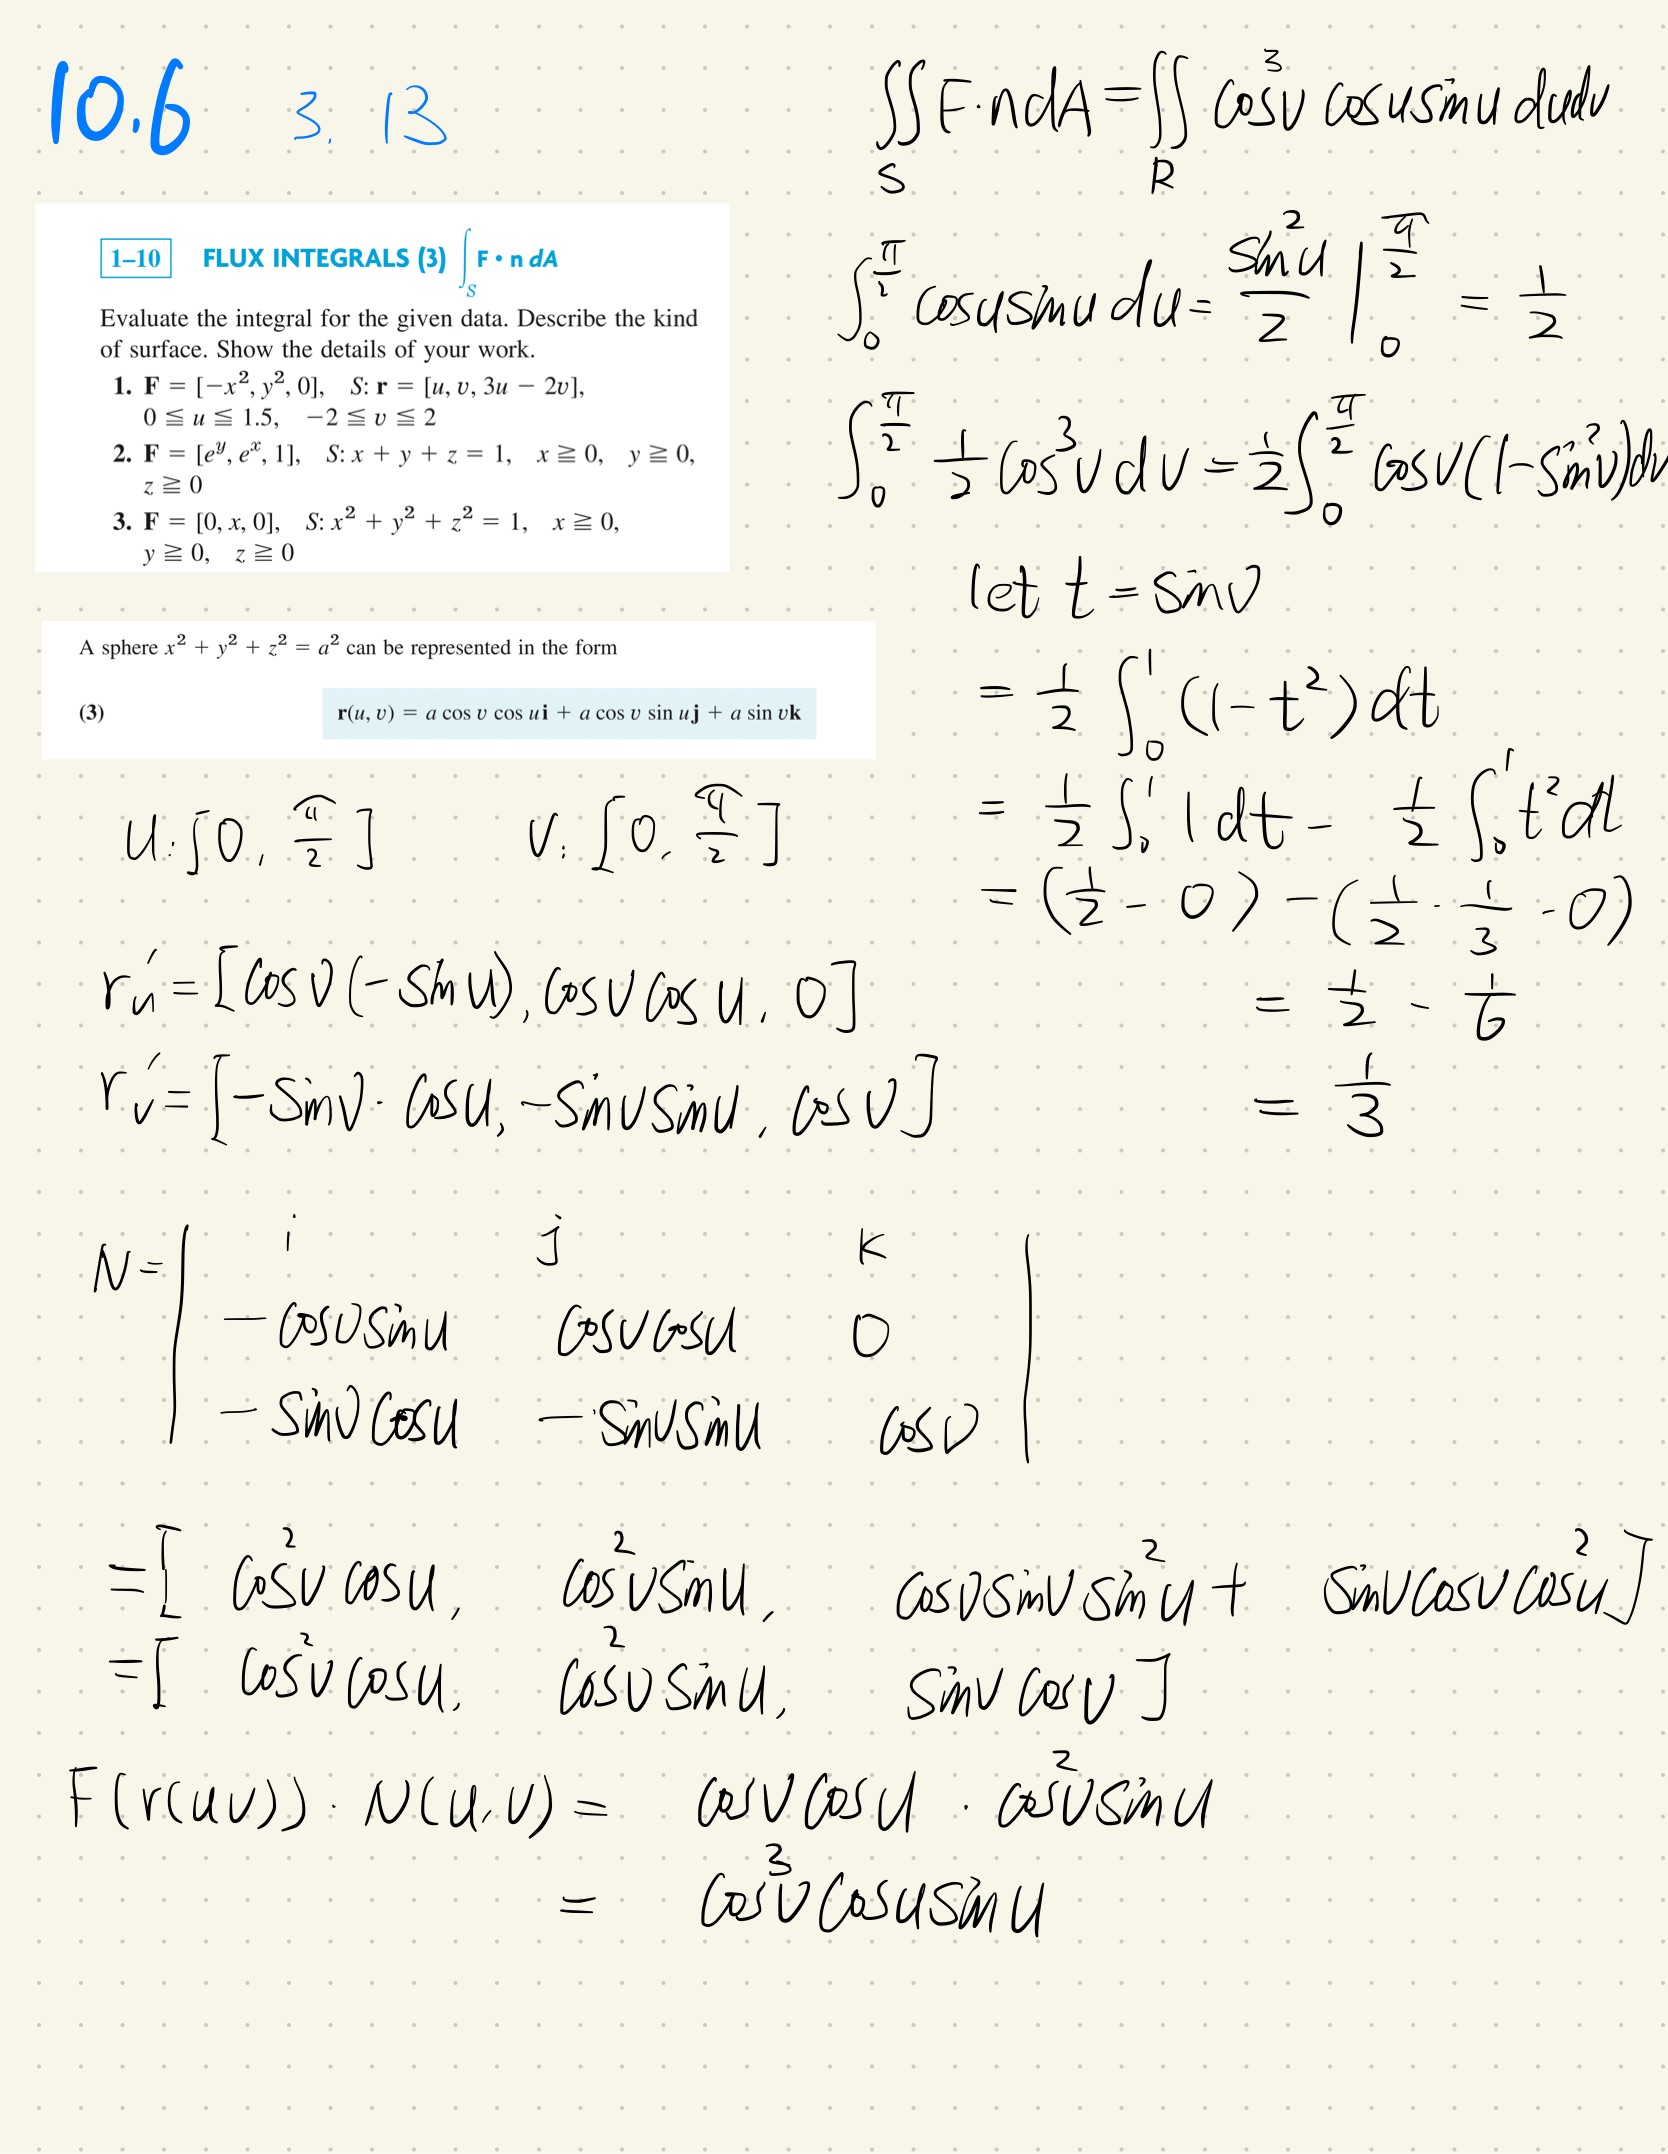 10.6 3. 13
1–10 FLUX INTEGRALS (3) ∫_S F • n dA
Evaluate the integral for the given data. Describe the kind
of surface. Show the details of your work.
1. F = [−x², y², 0], S: r = [u, v, 3u − 2v],
0 ≦ u ≦ 1.5, −2 ≦ v ≦ 2
2. F = [e^y, e^x, 1], S: x + y + z = 1, x ≧ 0, y ≧ 0,
z ≧ 0
3. F = [0, x, 0], S: x² + y² + z² = 1, x ≧ 0,
y ≧ 0, z ≧ 0
A sphere x² + y² + z² = a² can be represented in the form
(3) r(u, v) = a cos v cos u i + a cos v sin u j + a sin v k
u: [0, π/2] v: [0, π/2]
r'u = [cos v (−sin u), cos v cos u, 0]
r'v = [−sin v · cos u, −sin v sin u, cos v]
N = | i j k
−cos v sin u cos v cos u 0
−sin v cos u −sin v sin u cos v |
= [cos²v cos u, cos²v sin u, cos v sin v sin²u + sin v cos v cos²u]
= [cos²v cos u, cos²v sin u, sin v cos v]
F(r(uv)) · N(u,v) = cos v cos u · cos²v sin u
= cos³v cos u sin u
∬_S F·n dA = ∬_R cos³v cos u sin u du dv
∫_0^{π/2} cos u sin u du = sin²u/2 |_0^{π/2} = 1/2
∫_0^{π/2} 1/2 cos³v dv = 1/2 ∫_0^{π/2} cos v (1−sin²v) dv
let t = sin v
= 1/2 ∫_0^1 (1−t²) dt
= 1/2 ∫_0^1 1 dt − 1/2 ∫_0^1 t² dt
= (1/2 − 0) − (1/2 · 1/3 − 0)
= 1/2 − 1/6
= 1/3